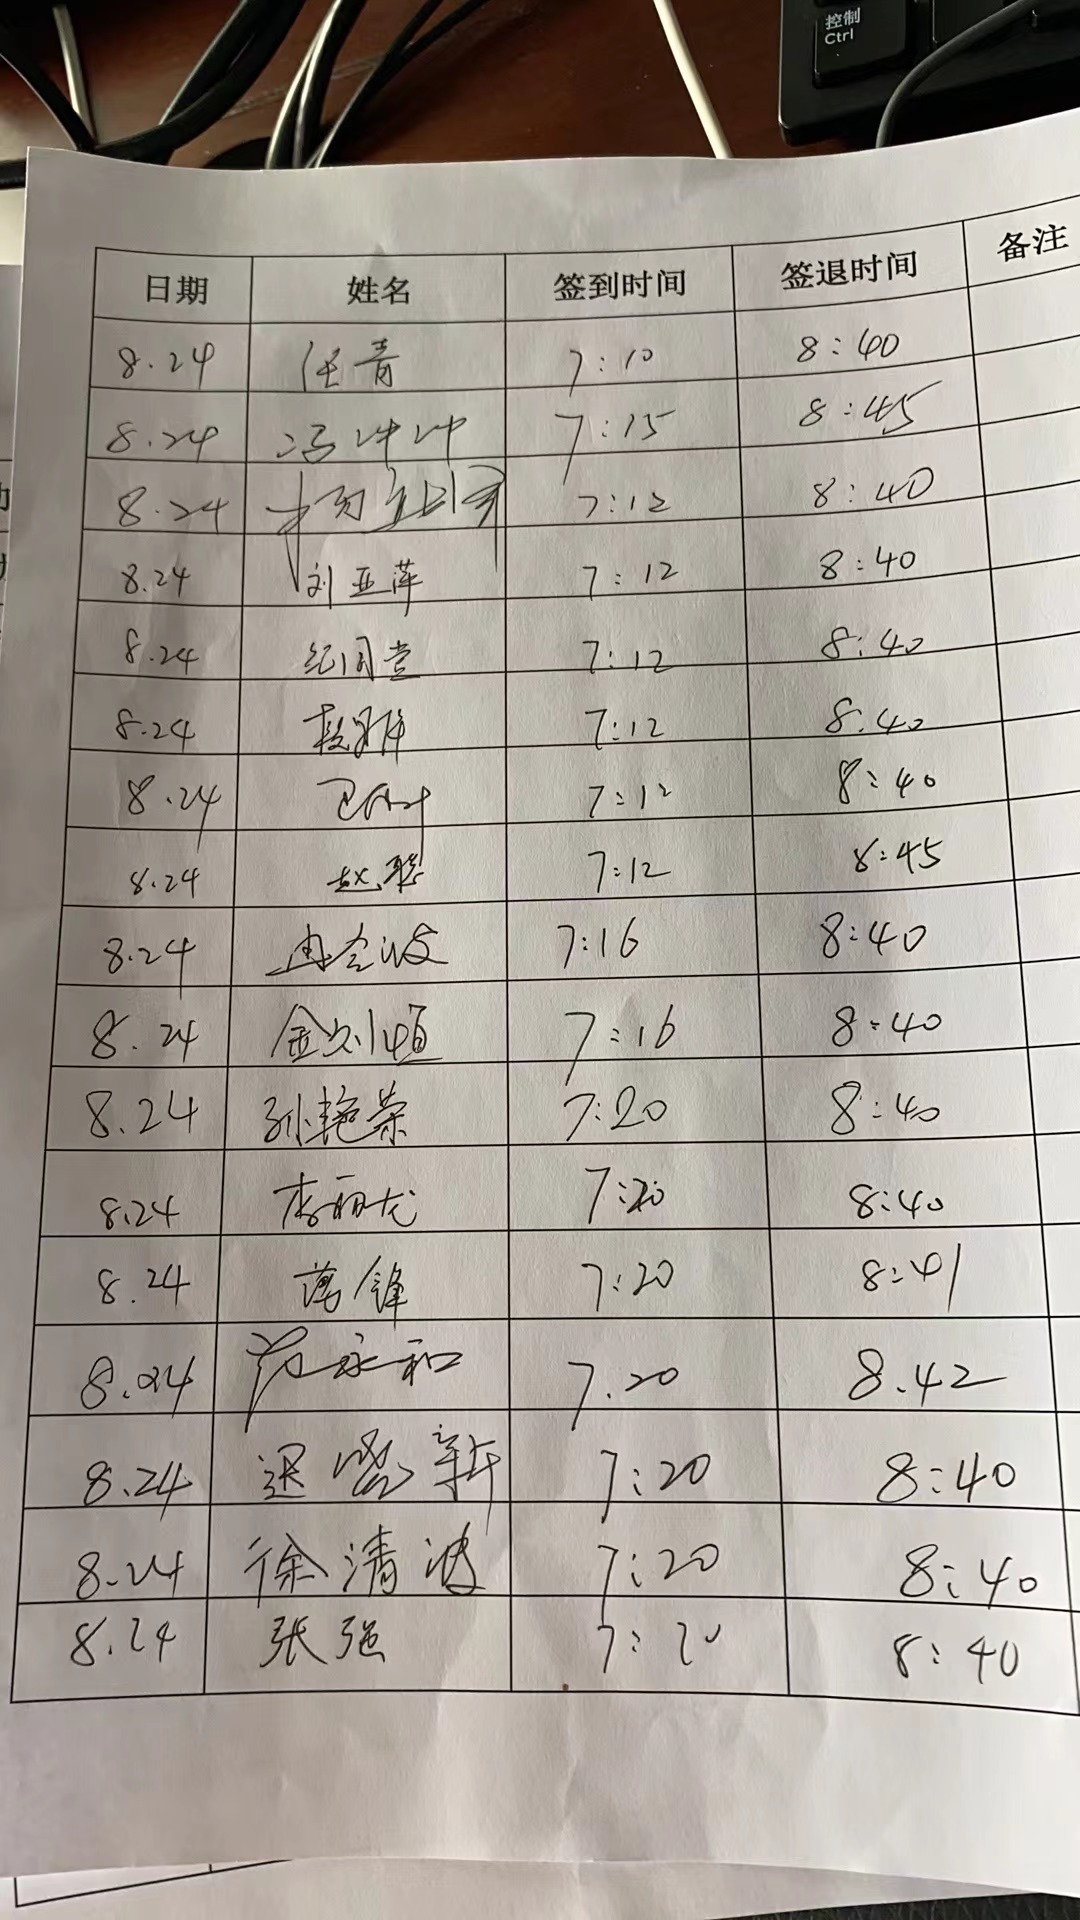 控制
Ctrl
日期 姓名 签到时间 签退时间 备注
8.24 任青 7:10 8:40
8.24 冯冲冲 7:15 8:45
8.24 7:12 8:40
8.24 刘亚萍 7:12 8:40
8.24 纪同堂 7:12 8:40
8.24 7:12 8.40
8.24 7:12 8:40
8.24 赵聪 7:12 8:45
8.24 冉令波 7:16 8:40
8.24 金刘恒 7:16 8:40
8.24 孙艳荣 7:20 8:40
8.24 李丽尤 7:20 8:40
8.24 蒋锋 7:20 8:41
8.24 范永和 7.20 8.42
8.24 新 7:20 8:40
8.24 徐清波 7:20 8:40
8.24 张强 7:20 8:40